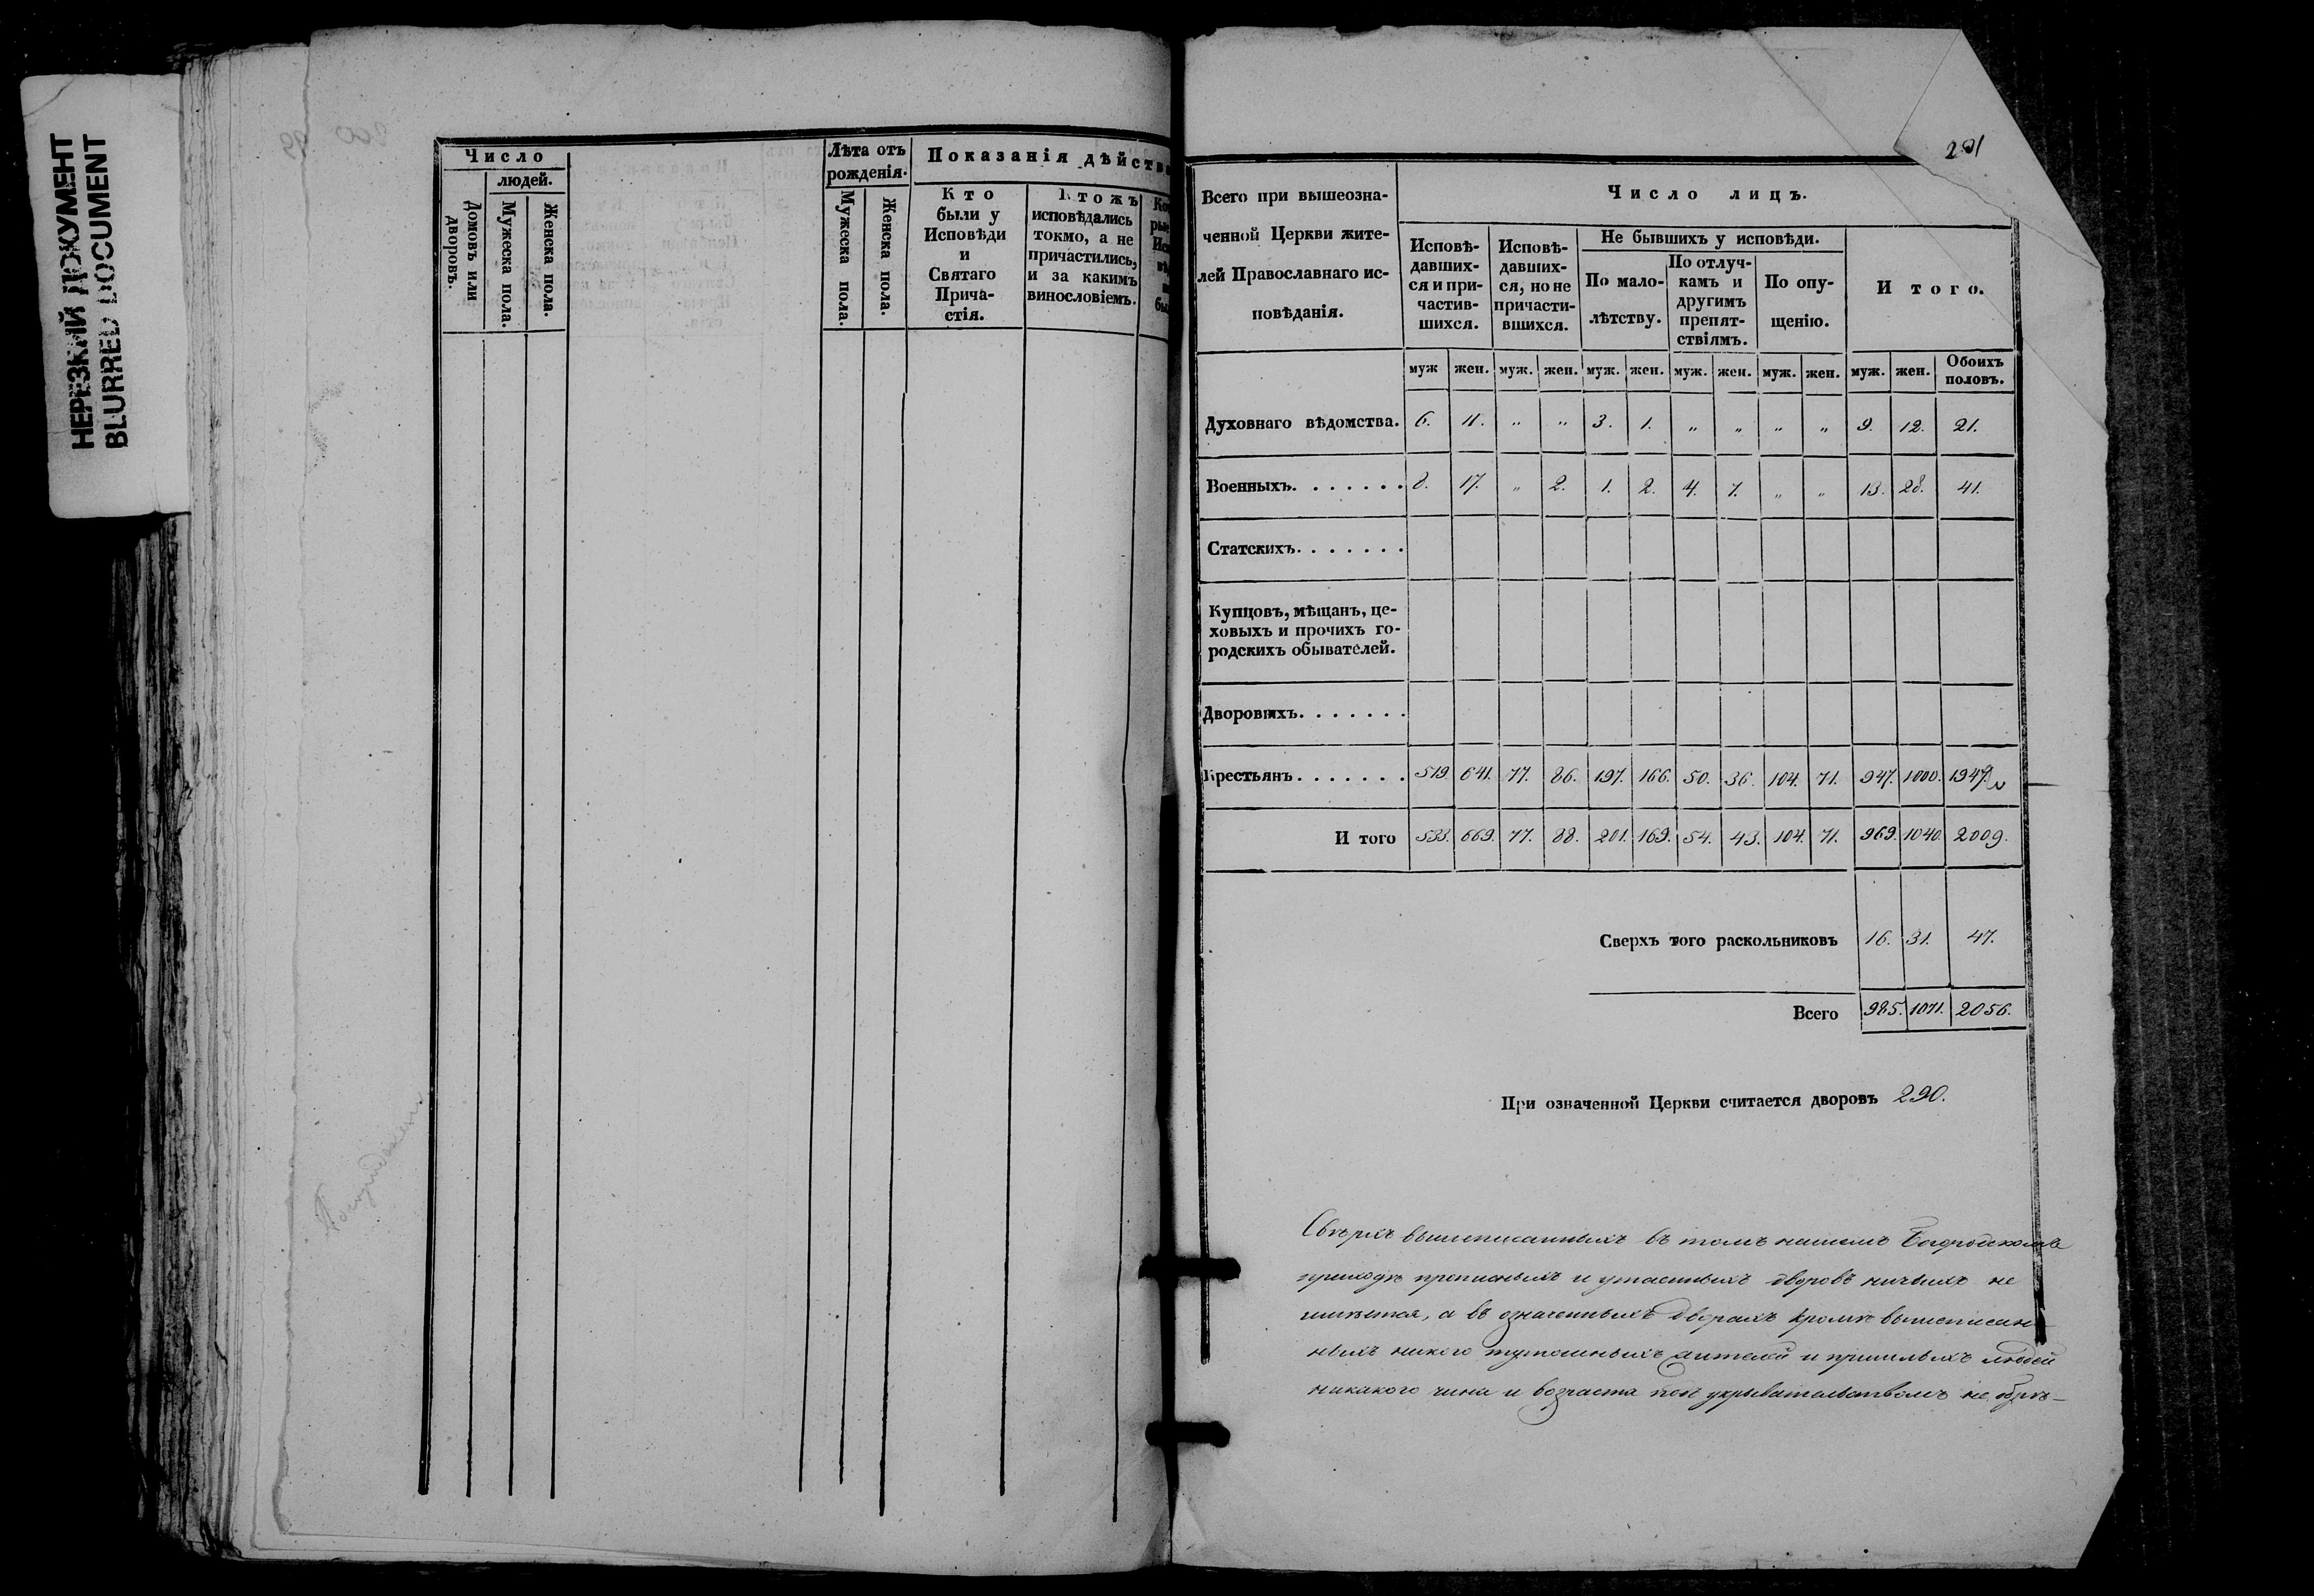 НЕРЕЗКИЙ ДОКУМЕНТ
BLURRED DOCUMENT
Число
людей.
Домовъ или дворовъ.
Мужеска пола.
Женска пола.
Лѣта отъ рожденія.
Мужеска пола.
Женска пола.
Показанія дѣйств
Кто
были у
Исповѣди
и
Святаго
Прича-
стія.
Ктожъ
исповѣдались
токмо, а не
причастились,
и за какимъ
винословіемъ.
201
Всего при вышеозна-
ченной Церкви жите-
лей Православнаго ис-
повѣданія.
Число лицъ.
Исповѣ-
давших-
ся и при-
частив-
шихся.
Исповѣ-
давших-
ся, но не
причасти-
вшихся.
Не бывшихъ у исповѣди.
По мало-
лѣтству.
По отлуч-
камъ и
другимъ
препят-
ствіямъ.
По опу-
щенію.
И того.
муж жен. муж. жен. муж. жен. муж. жен. муж. жен. муж. жен. Обоихъ половъ.
Духовнаго вѣдомства. 6. 11. „ „ 3. 1. „ „ „ „ 9. 12. 21.
Военныхъ. . . . . . . 8. 17. „ 2. 1. 2. 4. 7. „ „ 13. 28. 41.
Статскихъ. . . . . . .
Купцовъ, мѣщанъ, це-
ховыхъ и прочихъ го-
родскихъ обывателей.
Дворовыхъ. . . . . . .
Крестьянъ. . . . . . . 519. 641. 77. 86. 197. 166. 50. 36. 104. 71. 947. 1000. 1947.
И того 533. 669. 77. 88. 201. 169. 54. 43. 104. 71. 969. 1040. 2009.
Сверхъ того раскольниковъ 16. 31. 47.
Всего 985. 1071. 2056.
При означенной Церкви считается дворовъ 290.
Свѣрхъ вышеписанныхъ въ томъ нашемъ
приходѣ прописныхъ и утаенныхъ дворовъ ничьихъ не
имѣется, а въ означенныхъ дворахъ кромѣ вышеписан-
ныхъ никого тутошныхъ жителей и пришлыхъ людей
никакого чина и возраста под укрывательствомъ не обрѣ-